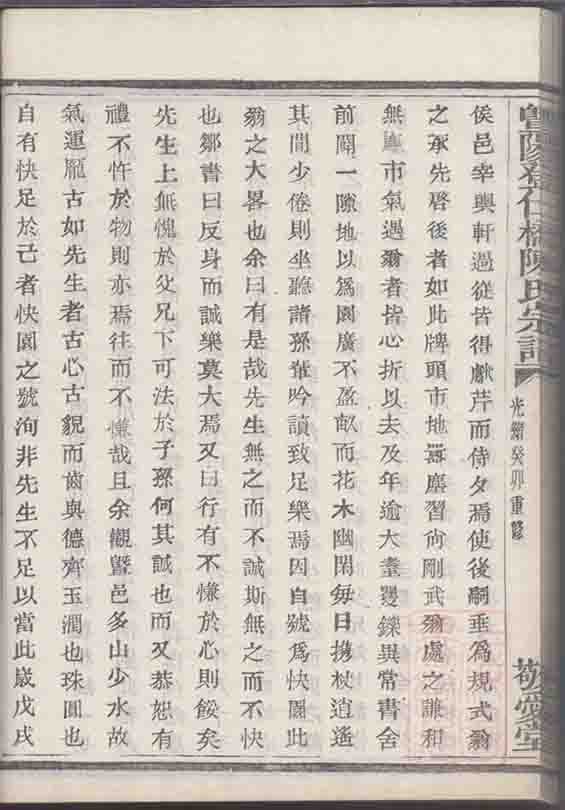 暨陽登仁橋陳氏宗譜
光緒癸卯重修
敬愛堂
侯邑幸輿軒過從皆得獻芹而侍夕焉使後嗣垂為規式翁
之承先啓後者如此牌頭市地囂塵習尚剛武翁處之謙和
無廛市氣遇翁者皆心折以去及年逾大耋矍鑠異常書舍
前闢一隙地以為園廣不盈畝而花木幽閒每日携杖逍遙
其間少倦則坐聽諸孫輩吟讀致足樂焉因自號為快園此
翁之大畧也余曰有是哉先生無之而不誠斯無之而不快
也鄒書曰反身而誠樂莫大焉又曰行有不慊於心則餒矣
先生上無愧於父兄下可法於子孫何其誠也而又恭恕有
禮不忤於物則亦焉往而不慊哉且余觀暨邑多山少水故
氣運龐古如先生者古心古貌而齒與德齊玉潤也珠圓也
自有快足於己者快園之號洵非先生不足以當此歲戊戌